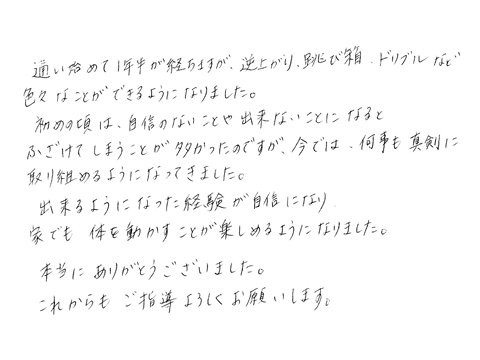 通い始めて1年半が経ちますが、逆上がり、跳び箱、ドリブルなど
色々なことができるようになりました。
初めの頃は、自信のないことや出来ないことになると
ふざけてしまうことが多かったのですが、今では、何事も真剣に
取り組めるようになってきました。
出来るようになった経験が自信になり
家でも体を動かすことが楽しめるようになりました。
本当にありがとうございました。
これからもご指導よろしくお願いします。